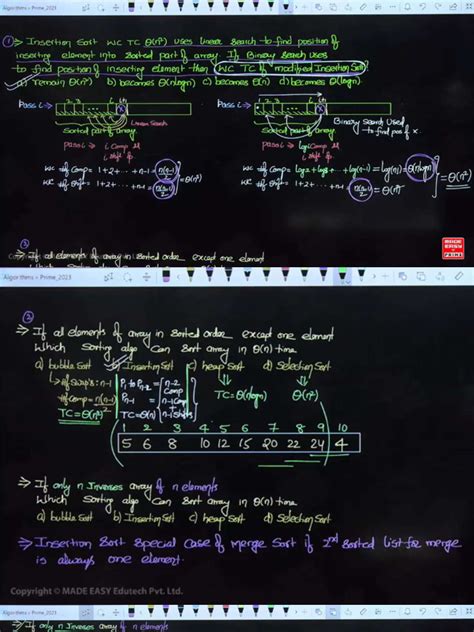 Algorithms - Prime_2023
① ⇒ Insertion Sort WC TC Θ(n²) uses linear search to find position of
inserting element into sorted part of array. If Binary Search uses
to find position of inserting element then WC TC of modified Insertion Sort?
a) remain Θ(n²) b) becomes Θ(nlogn) c) becomes Θ(n) d) becomes Θ(logn)
Pass i ⇒
Linear Search
Sorted part of array.
Pass i ⇒ i Comp
i Shift
WC # of Comp = 1+2+ ··· +n-1 = n(n-1)/2
WC # of Shift = 1+2+ ··· +n-1 = n(n-1)/2
= Θ(n²)
Pass i ⇒
Binary Search Used
to find pos of x.
Sorted part of array.
Pass i ⇒ log i Comp
i Shift
WC # of Comp = log2+log3+ ··· +log(n-1) = log(n!) = Θ(nlogn)
WC # of Shift = 1+2+ ··· +n-1 = n(n-1)/2 = Θ(n²)
= Θ(n²)
MADE EASY PRIME
③
⇒ If all elements of array in sorted order except one element
Algorithms - Prime_2023
③
⇒ If all elements of array in sorted order except one element
Which Sorting algo Can Sort array in Θ(n) time
a) bubble Sort b) Insertion Sort c) heap Sort d) Selection Sort
# of Swaps: n-1
# of Comp = n(n-1)/2
TC = Θ(n²)
P1 to Pn-2 = n-2 Comp
Pn-1 = n-1 Comp
n-1 Shifts
TC = Θ(n)
TC = Θ(nlogn)
Θ(n²)
1 2 3 4 5 6 7 8 9 10
5 6 8 10 12 15 20 22 24 4
⇒ If only n Inverses array of n elements
Which Sorting algo Can Sort array in Θ(n) time
a) bubble Sort b) Insertion Sort c) heap Sort d) Selection Sort
⇒ Insertion Sort Special Case of Merge Sort if 2nd Sorted list for merge
is always one element.
Copyright © MADE EASY Edutech Pvt. Ltd.
Algorithms - Prime_2023
⇒ If only n Inverses array of n elements